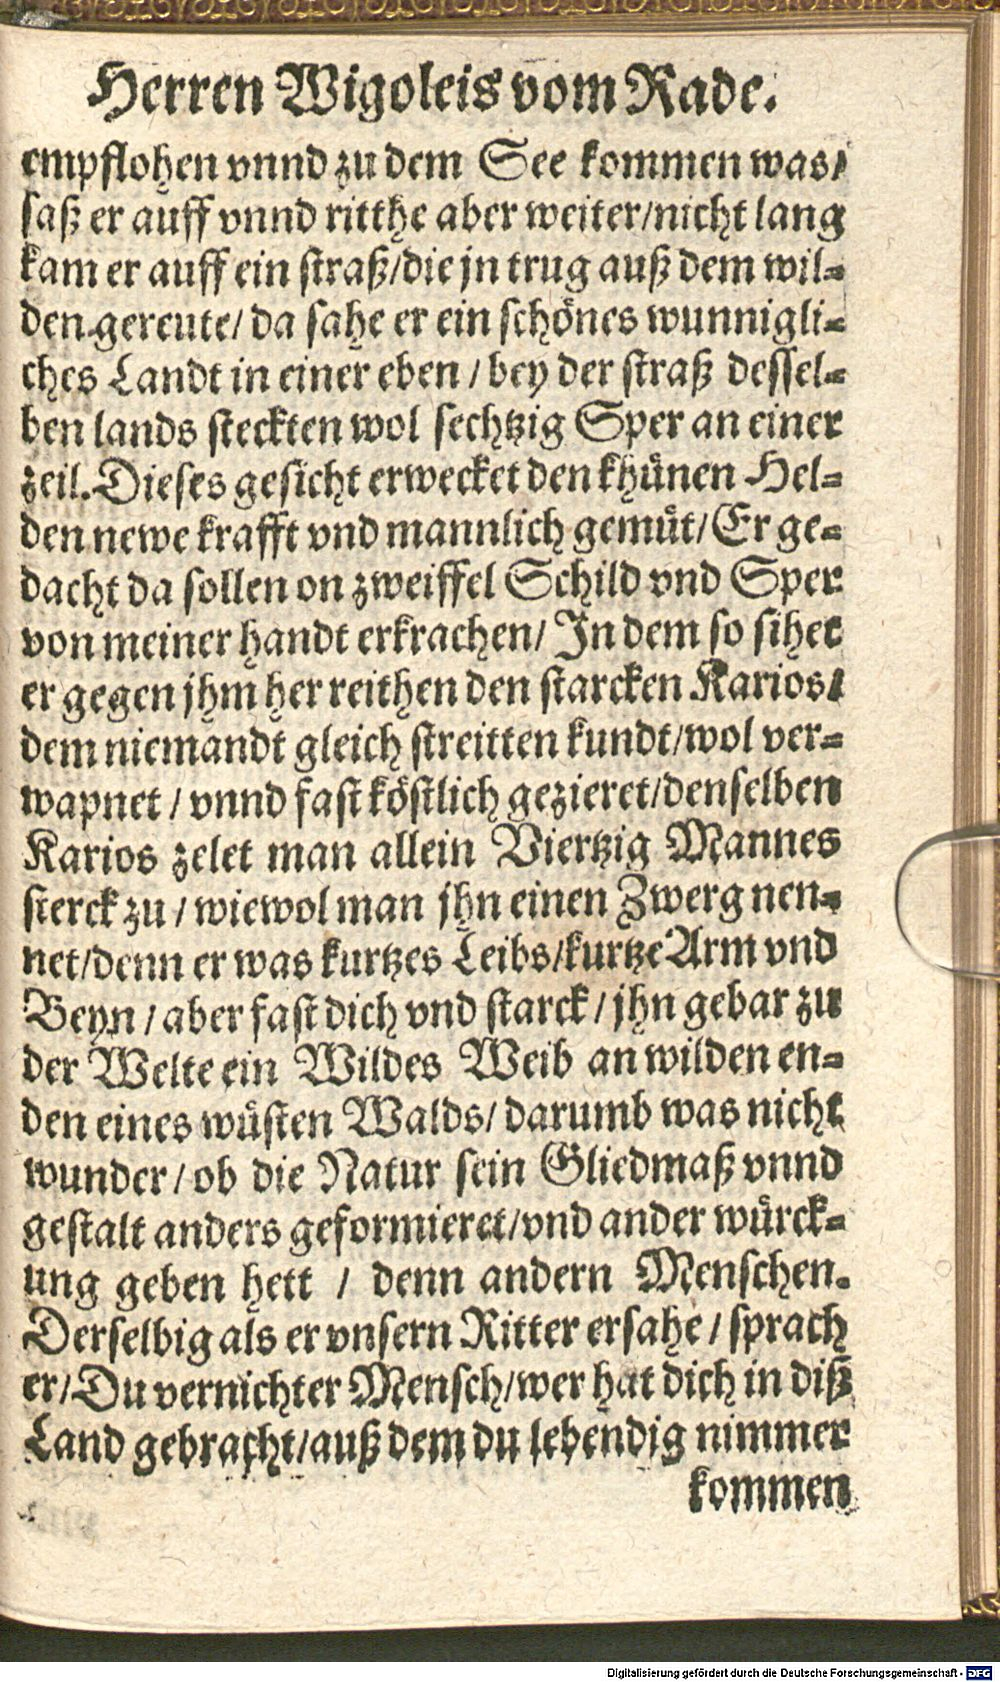 Herren Wigoleis vom Rade.
empflohen vnnd zu dem See kommen was/
saß er auff vnnd ritthe aber weiter/nicht lang
kam er auff ein straß/die jn trug auß dem wil⸗
den gereute/ da sahe er ein schönes wunnigli⸗
ches Landt in einer eben / bey der straß dessel⸗
ben lands steckten wol sechtzig Sper an einer
zeil. Dieses gesicht erwecket den khünen Hel⸗
den newe krafft vnd mannlich gemüt/ Er ge⸗
dacht da sollen on zweiffel Schild vnd Sper
von meiner handt erkrachen/ In dem so sihet
er gegen jhm her reithen den starcken Karios/
dem niemandt gleich streitten kundt/wol ver⸗
wapnet / vnnd fast köstlich gezieret/denselben
Karios zelet man allein Viertzig Mannes
sterck zu / wiewol man jhn einen Zwerg nen⸗
net/denn er was kurtzes Leibs/kurtze Arm vnd
Beyn / aber fast dich vnd starck / jhn gebar zu
der Welte ein Wildes Weib an wilden en⸗
den eines wüsten Walds/ darumb was nicht
wunder / ob die Natur sein Gliedmaß vnnd
gestalt anders geformieret/vnd ander würck⸗
ung geben hett / denn andern Menschen.
Derselbig als er vnsern Ritter ersahe / sprach
er/Du vernichter Mensch/wer hat dich in diß
Land gebracht/auß dem du lebendig nimmer
kommen
Digitalisierung gefördert durch die Deutsche Forschungsgemeinschaft - DFG